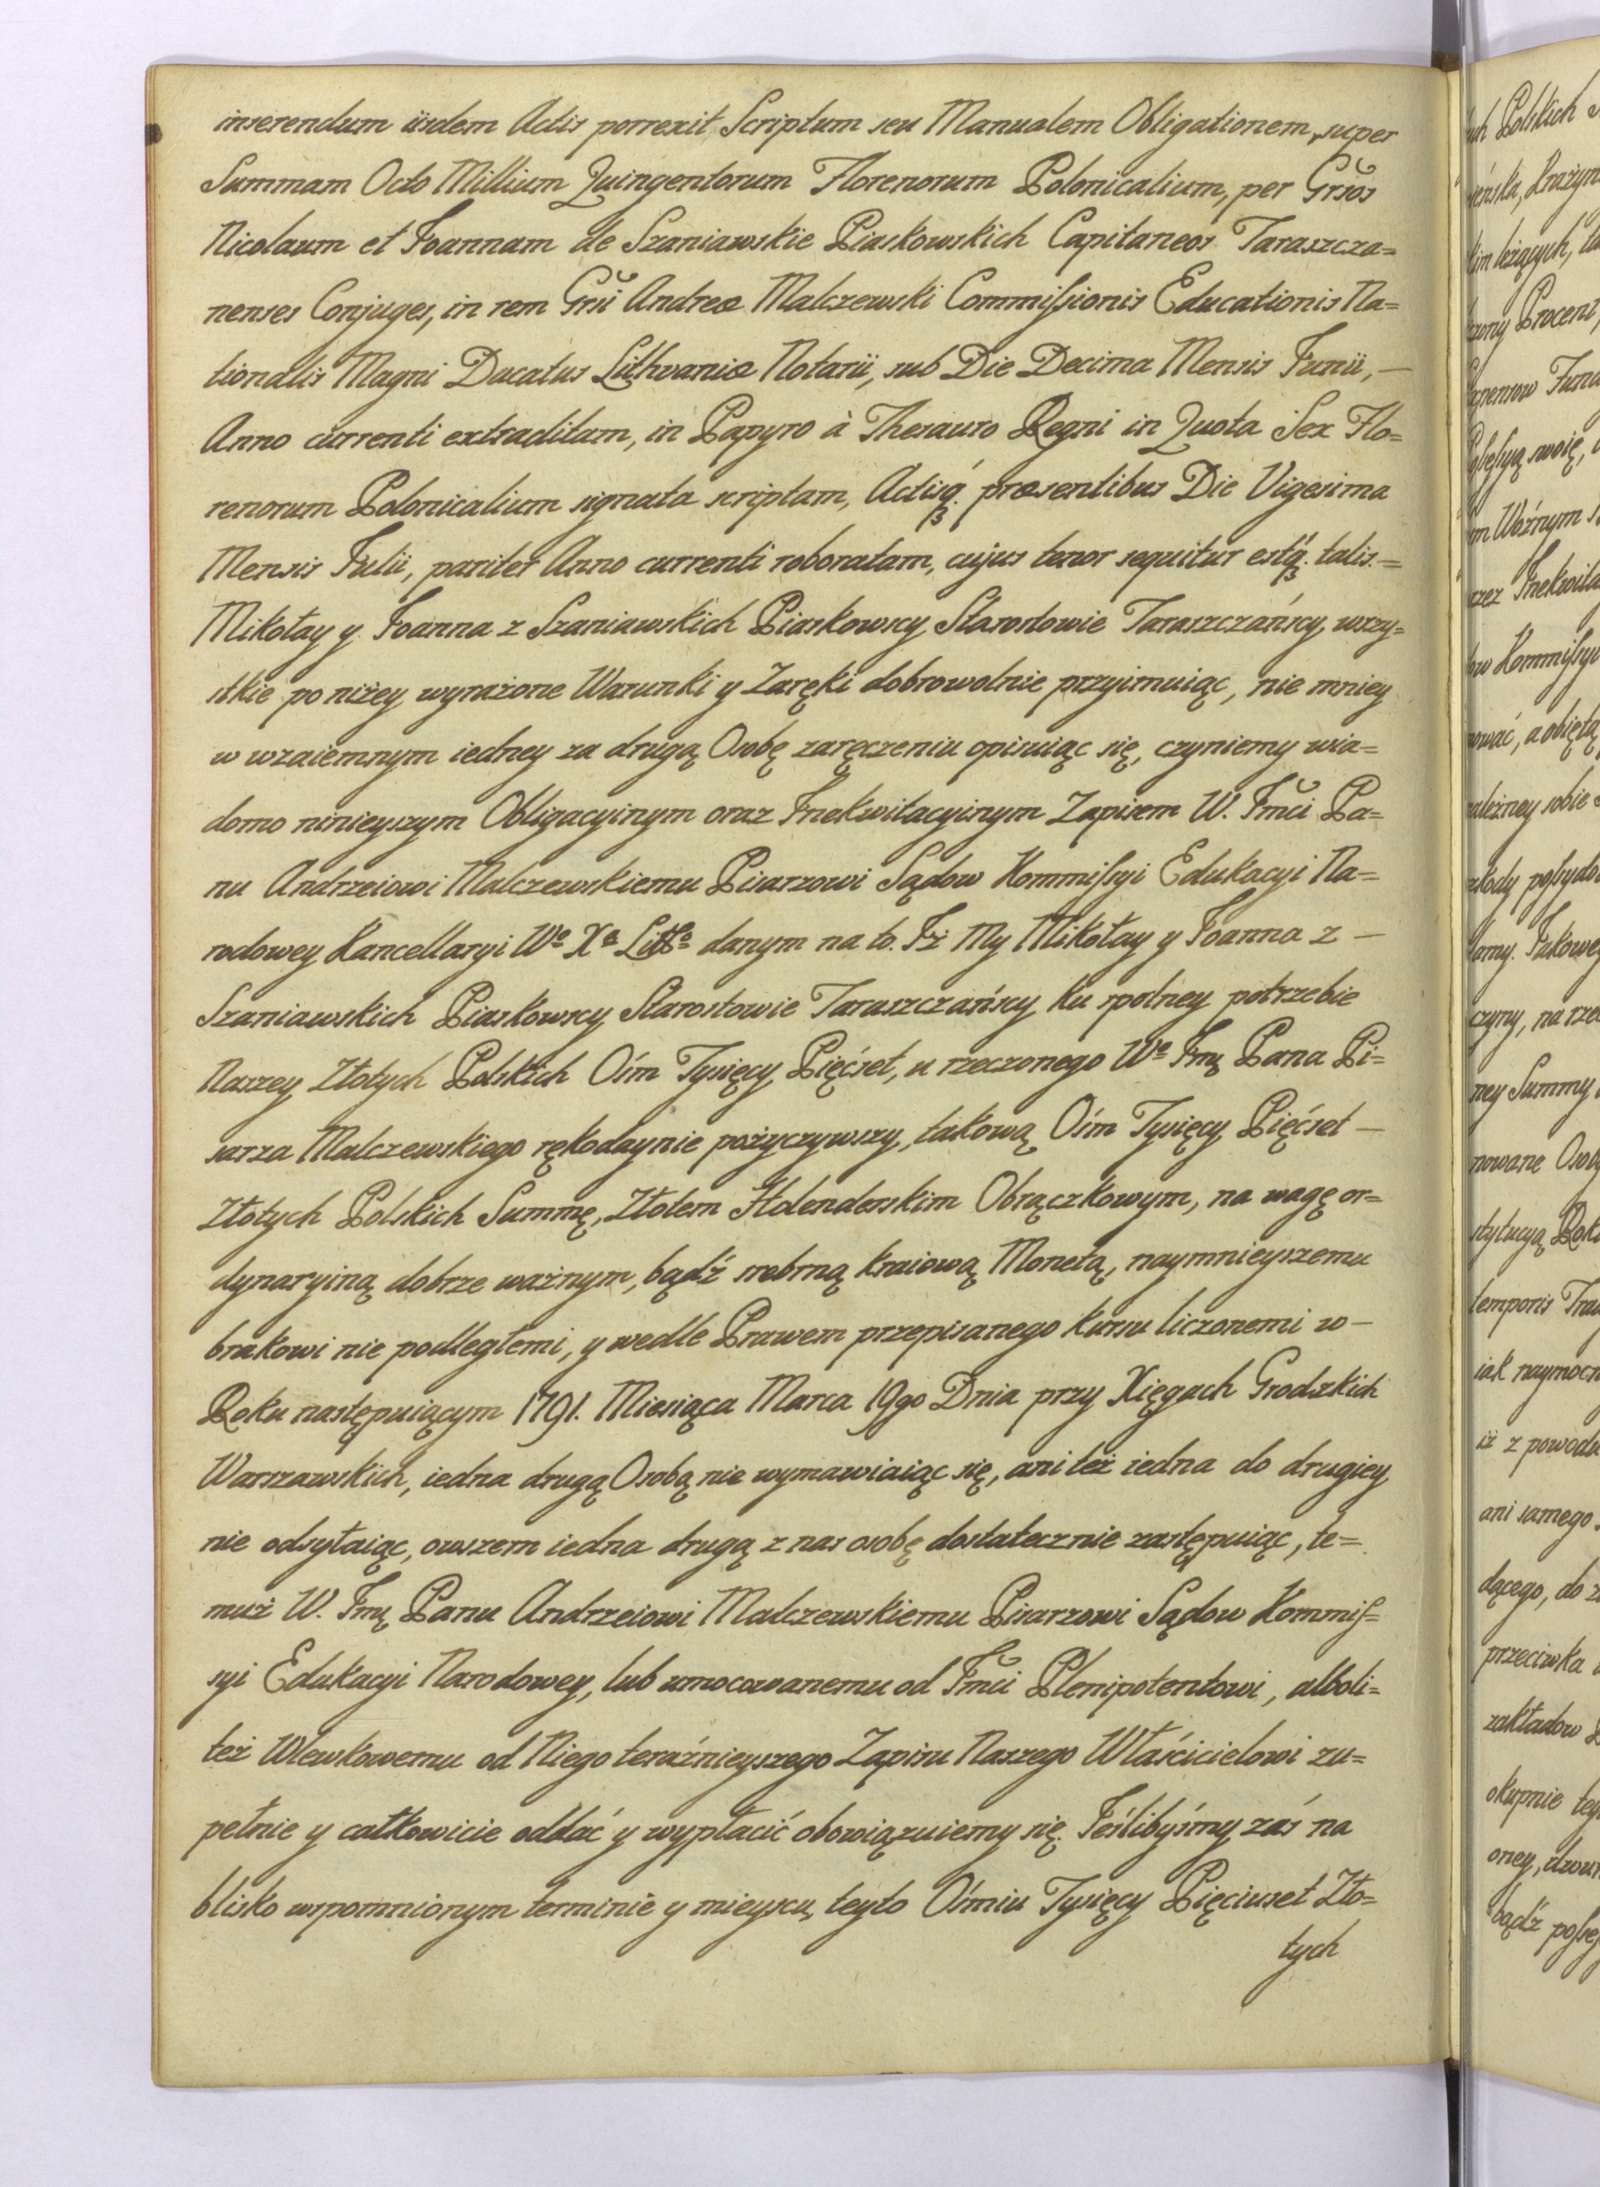 inserendum iisdem Actis porrexit Scriptum seu Manualem Obligationem, super
Summam Octo Millium Quingentorum Florenorum Polonicalium, per Grsos
Nicolaum et Joannam de Szaniawskie Piaskowskich Capitaneos Taraszcza=
nenses Conjuges, in rem Grsi Andreæ Malczewski Commissionis Educationis Na=
tionalis Magni Ducatus Lithvaniæ Notarii, sub Die Decima Mensis Junii, —
Anno currenti extraditam, in Papyro à Thesauro Regni in Quota Sex Flo=
renorum Polonicalium signata scriptam, Actisq. præsentibus Die Vigesima
Mensis Julii, pariter Anno currenti roboratam, cujus tenor sequitur estq. talis. =
Mikołay y Joanna z Szaniawskich Piaskowscy Starostowie Taraszczańscy, wszy=
stkie po niżey wyrażone Warunki y Zaręki dobrowolnie przyimuiąc, nie mniey
w wzaiemnym iedney za drugą Osobę zaręczeniu opisuiąc się, czyniemy wia=
domo ninieyszym Obligacyinym oraz Inekwitacyinym Zapisem W. Jmci Pa=
nu Andrzeiowi Malczewskiemu Pisarzowi Sądow Kommissyi Edukacyi Na=
rodowey Kancellaryi Wo Xa Litto danym na to. Iż My Mikołay y Joanna z —
Szaniawskich Piaskowscy Starostowie Taraszczańscy, ku spolney potrzebie
Naszey Złotych Polskich Ośm Tysięcy Pięćset, u rzeczonego Wo Jmę Pana Pi=
sarza Malczewskiego rękodaynie pożyczywszy, takową Ośm Tysięcy Pięćset —
Złotych Polskich Summę, Złotem Holenderskim Obrączkowym, na wagę or=
dynaryiną dobrze ważnym, bądź srebrną kraiową Monetą, naymnieyszemu
brakowi nie podległemi, y wedle Prawem przepisanego kursu liczonemi w —
Roku następuiącym 1791. Miesiąca Marca 19go Dnia przy Xięgach Grodzkich
Warszawskich, iedna drugą Osobą nie wymawiaiąc się, ani też iedna do drugiey
nie odsyłaiąc, owszem iedna drugą z nas osobę dostatecznie zastępuiąc, te=
muż W. Jmę Panu Andrzeiowi Malczewskiemu Pisarzowi Sądow Kommis=
syi Edukacyi Narodowey, lub umocowanemu od Jmci Plenipotentowi, alboli=
też Wlewkowemu od Niego teraźnieyszego Zapisu Naszego Właścicielowi zu=
pełnie y całkowicie oddać y wypłacić obowiązuiemy się. Jeślibyśmy zaś na
blisko wspomnionym terminie y mieyscu, teyto Ośmiu Tysięcy Pięciuset Zło=
tych